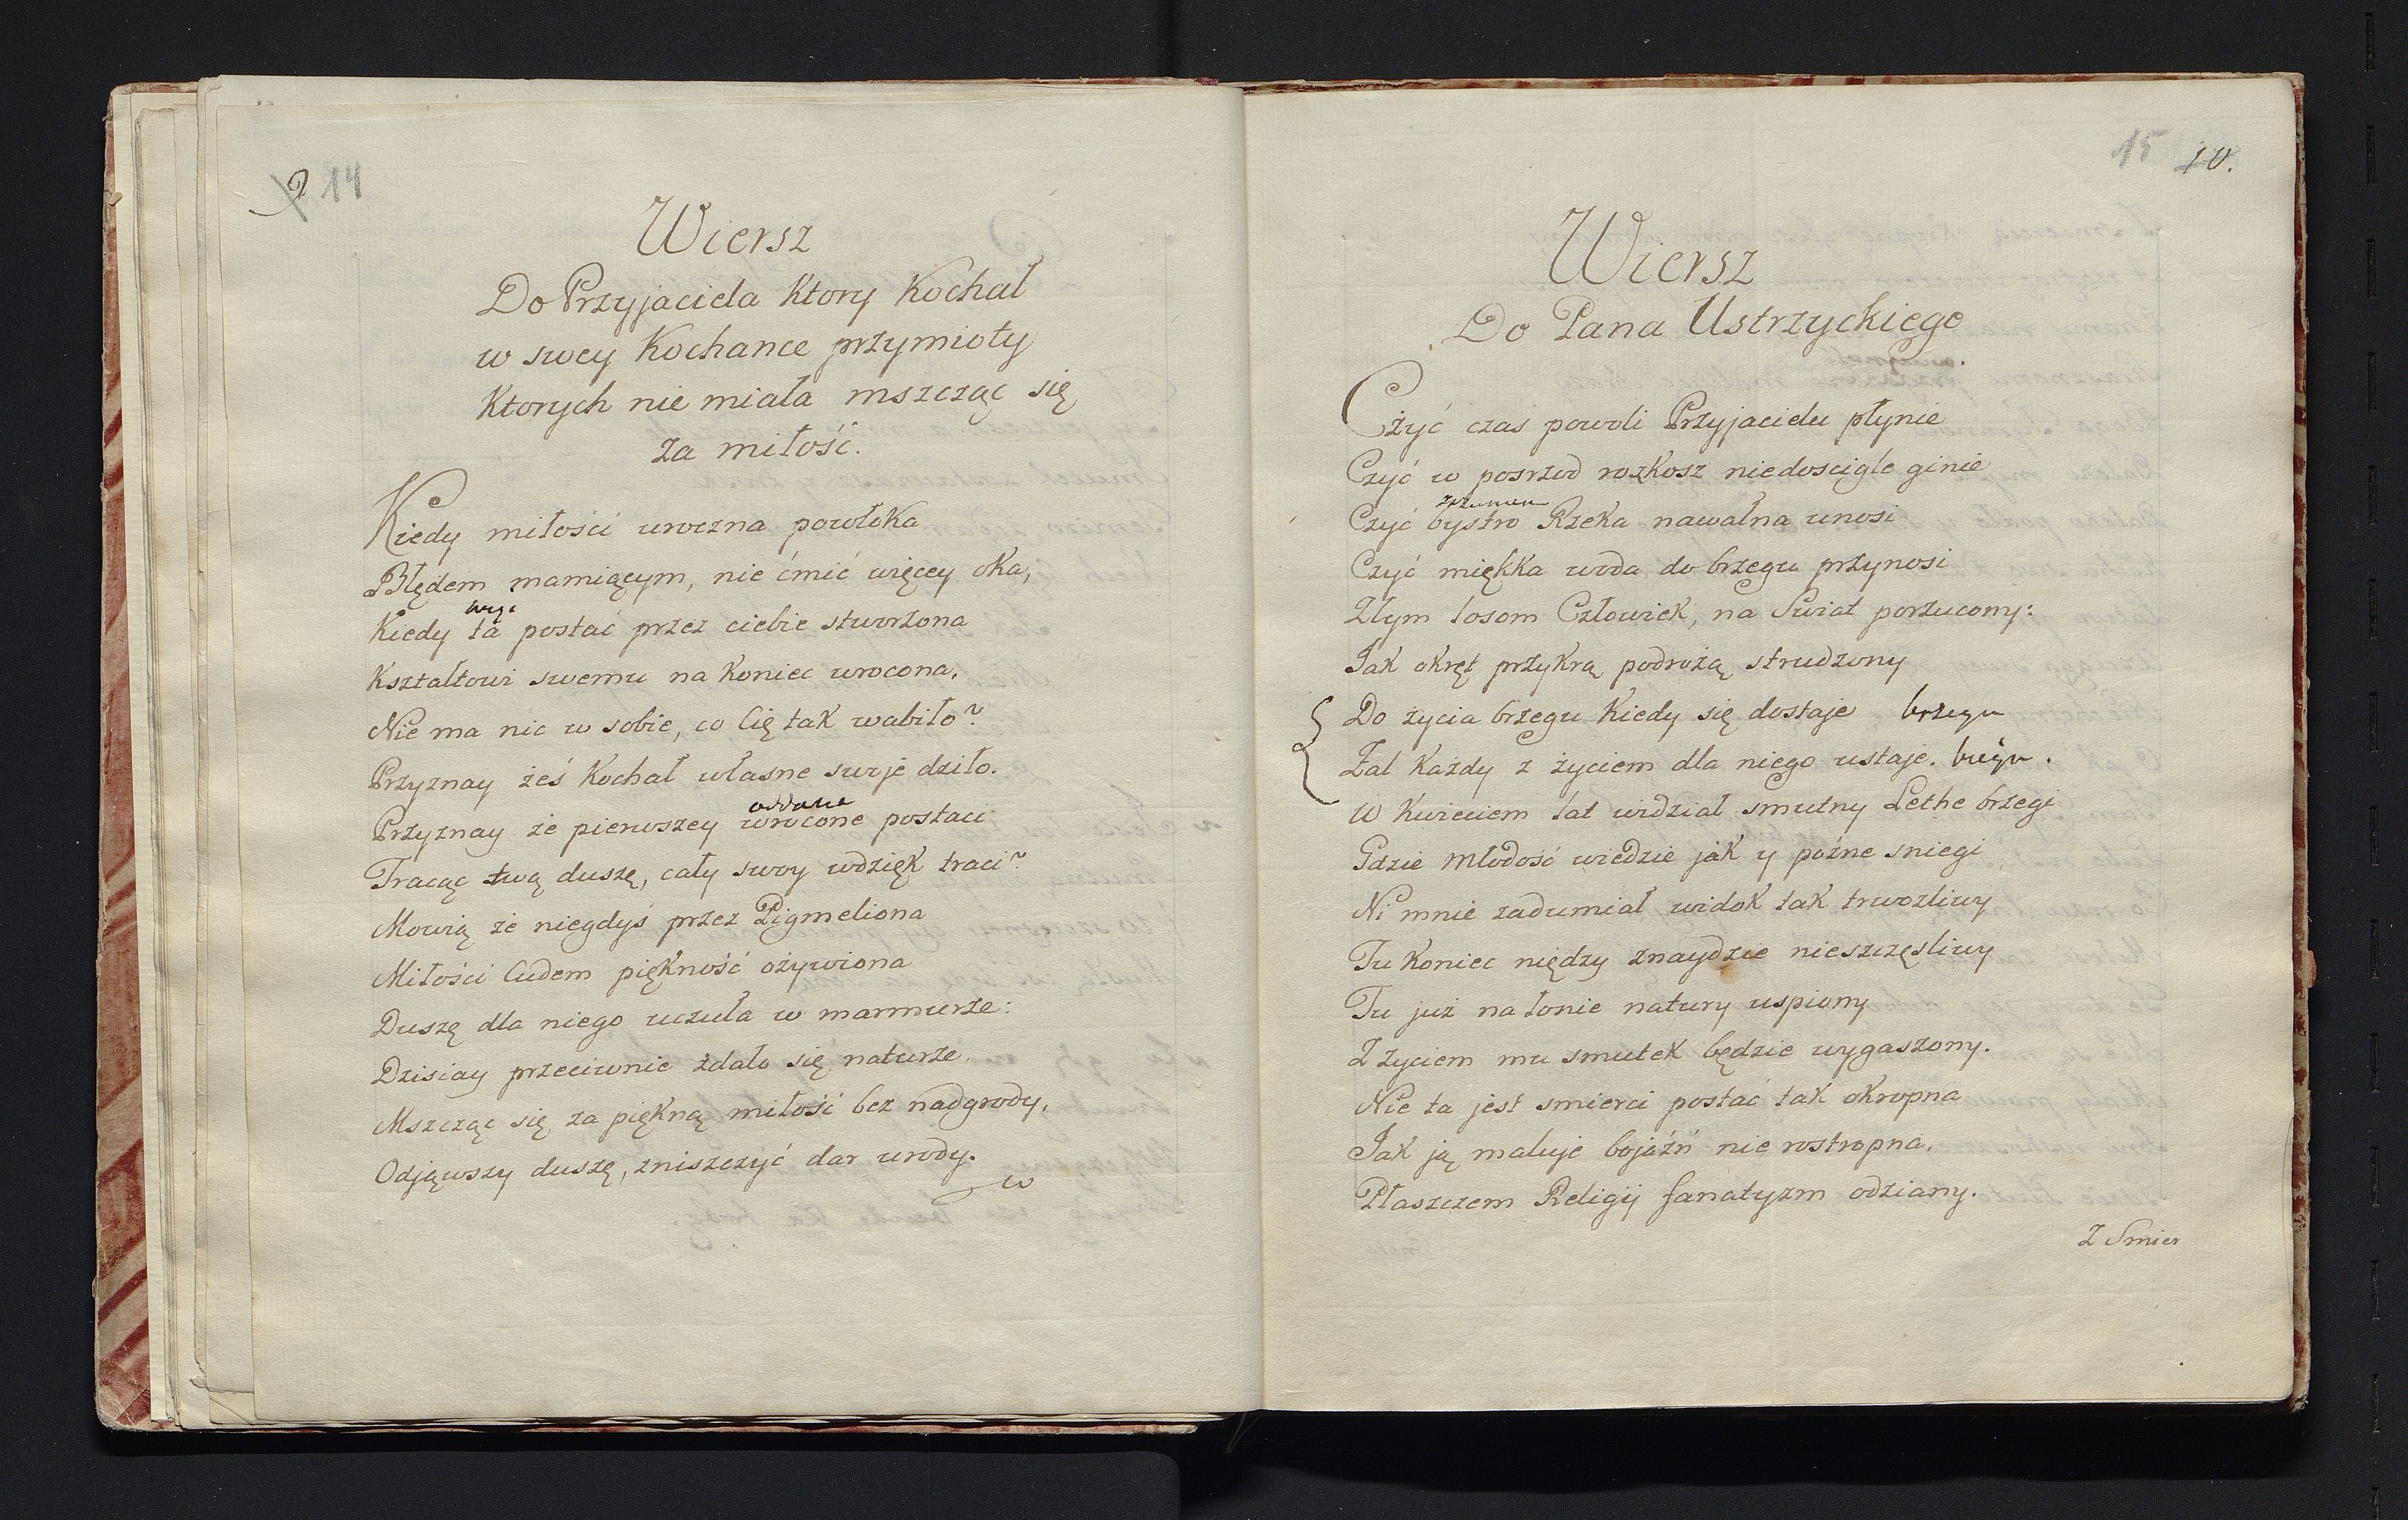 9 14
Wiersz
Do Przyjaciela Ktory Kochał
w swey Kochance przymioty
Ktorych nie miała mszcząc się
za miłość.
Kiedy miłości uroczna powłoka
Błędem mamiącym, nie ćmić więcey oka,
Kiedy ta postać przez ciebie stworzona
Kształtowi swemu na Koniec wrocona,
Nie ma nic w sobie, co Cię tak wabiło?
Przyznay żeś Kochał własne swoje dziło.
oddane
Przyznay że pierwszey wrocone postaci
Tracąc twą duszę, cały swoy wdzięk traci?
Mowią że niegdyś przez Pigmeliona
Miłości Cudem piękność ożywiona
Duszę dla niego uczuła w marmurze:
Dzisiay przeciwnie zdało się naturze.
Mszcząc się za piękną miłość bez nadgrody,
Odjąwszy duszę, zniszczyć dar urody.
w
15 10.
Wiersz
Do Pana Ustrzyckiego.
Czyć czas powoli Przyjacielu płynie
Czyć w posrzod rozkosz niedościgle ginie
Czyć bystro Rzeka nawalna unosi
Czyć miękka woda do brzegu przynosi
Złym losom Człowiek, na Swiat porzucony:
Jak okręt przykrą podrożą strudzony
Do życia brzegu Kiedy się dostaje brzegu
Żal Każdy z życiem dla niego ustaje. biegu.
W Kwieciem lat widział smutny Lethe brzegi
Gdzie Młodość wiedzie jak y pożne sniegi
Ni mnie zadumiał widok tak trwozliwy
Tu Koniec niędzy znaydzie nieszczęsliwy
Tu już na łonie natury uspiony
Z życiem mu smutek będzie wygaszony.
Nie ta jest smierci postać tak okropna
Jak ją maluje bojaźń nie rostropna,
Płaszczem Religij fanatyzm odziany.
Z Smier